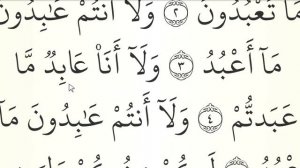 مَا تَعْبُدُونَ ٢ وَلَآ أَنتُمْ عَٰبِدُونَ
مَآ أَعْبُدُ ٣ وَلَآ أَنَا۠ عَابِدٌ مَّا
عَبَدتُّمْ ٤ وَلَآ أَنتُمْ عَٰبِدُونَ مَآ